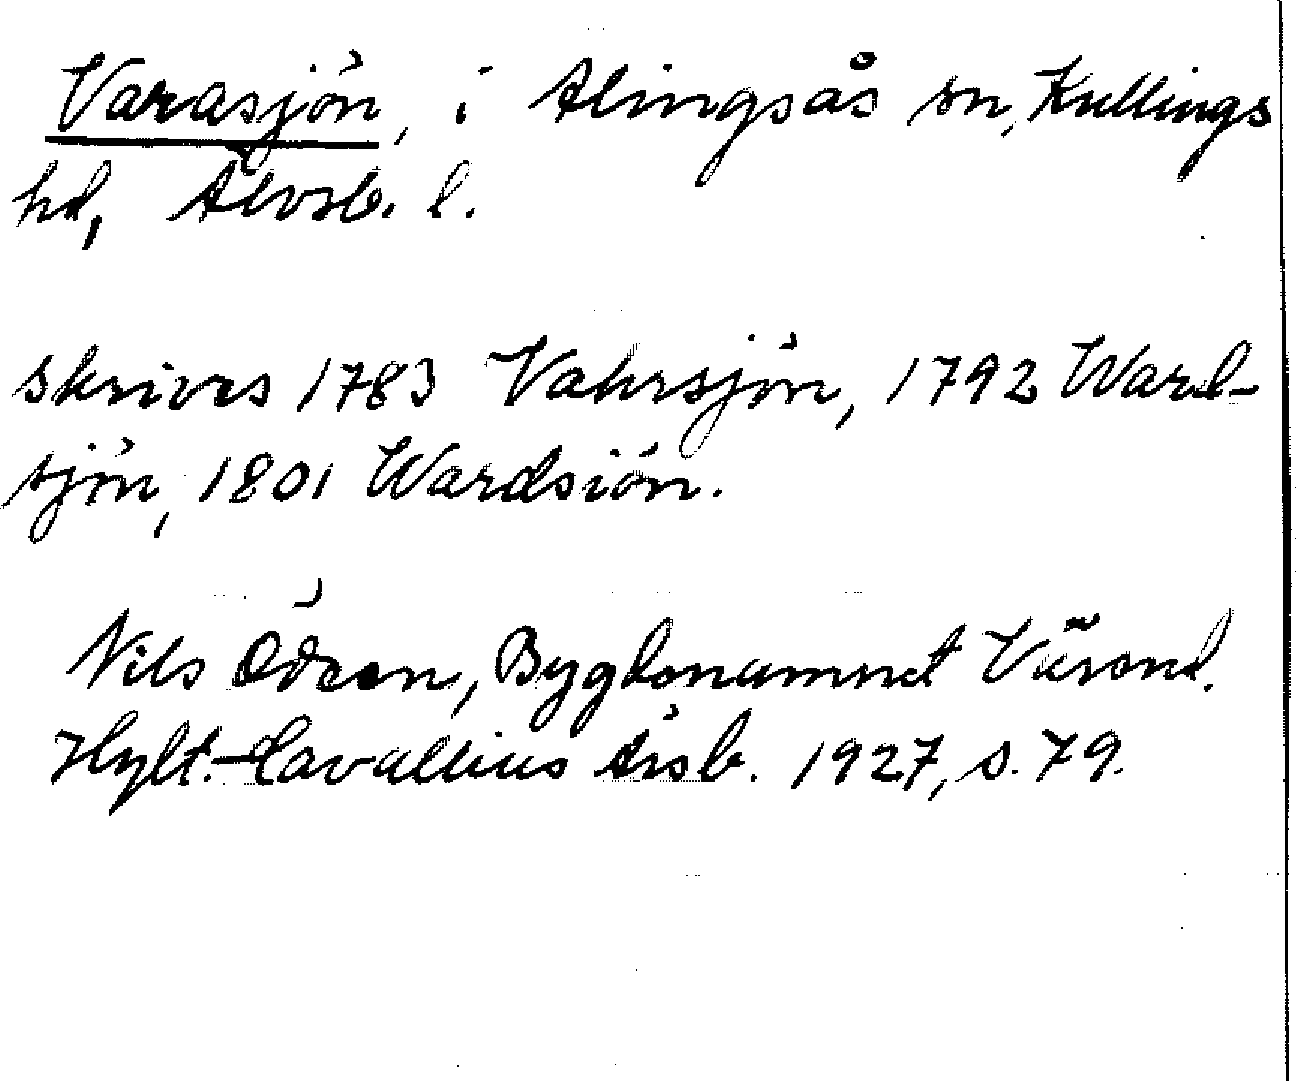 Varasjön, i Alingsås sn, Kullings
hd, Älvsb. l.
skrives 1783 Vahrsjön, 1792 Ward-
sjön, 1801 Wardsiön.
Nils Ödeen, Bygdenamnet Värend.
Hylt.-Cavallius Årsb. 1927, s. 79.